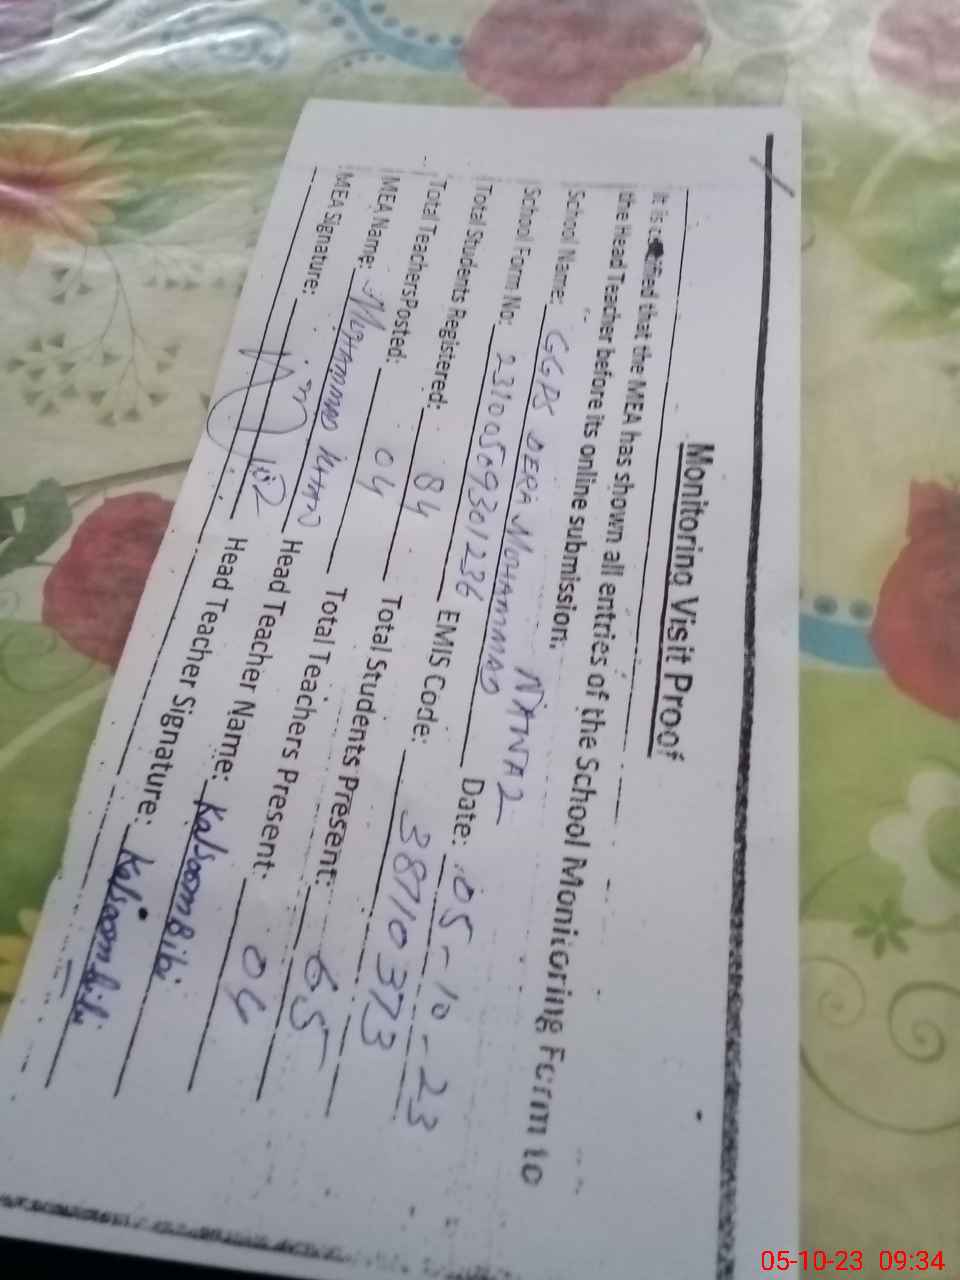 Monitoring Visit Proof
It is certified that the MEA has shown all entries of the School Monitoring Form to
the Head Teacher before its online submission.
School Name: GGPS DERA MOHAMMAD NAWAZ
School Form No: 23100509301236 Date: 05-10-23
Total Students Registered: 84 EMIS Code: 38710373
Total Teachers Posted: 04 Total Students Present: 65
MEA Name: MUHAMMAD KHAN Total Teachers Present: 04
MEA Signature: Head Teacher Name: Kalsoom Bibi
Head Teacher Signature: Kalsoom Bibi
05-10-23 09:34